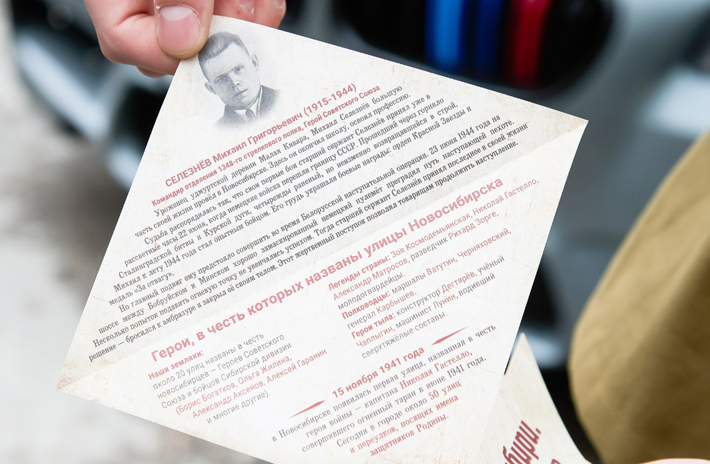 СЕЛЕЗНЁВ Михаил Григорьевич (1915-1944)
Командир отделения 1348-го стрелкового полка, Герой Советского Союза
Уроженец удмуртской деревни Малая Кивара, Михаил Селезнёв большую
часть своей жизни провёл в Новосибирске. Здесь он окончил школу, освоил профессию.
Судьба распорядилась так, что свои первые бои старший сержант Селезнёв принял уже в
рассветные часы 22 июня, когда немецкие войска перешли границу СССР. Прошедший через горнило
Сталинградской битвы и Курской дуги, четырежды раненый, но неизменно возвращавшийся в строй,
Михаил к лету 1944 года стал опытным бойцом. Его грудь украшали боевые награды: орден Красной Звезды и
медаль «За отвагу».
Но главный подвиг ему предстояло совершить во время Белорусской наступательной операции. 23 июня 1944 года на
шоссе между Бобруйском и Минском хорошо замаскированный немецкий пулемёт преградил путь наступающей пехоте.
Несколько попыток подавить огневую точку не увенчались успехом. Тогда старший сержант Селезнёв принял последнее в своей жизни
решение – бросился к амбразуре и закрыл её своим телом. Этот жертвенный поступок позволил товарищам продолжить наступление.
Герои, в честь которых названы улицы Новосибирска
Наши земляки:
около 20 улиц названы в честь
новосибирцев – Героев Советского
Союза и бойцов Сибирской дивизии
(Борис Богатков, Ольга Жилина,
Александр Аксёнов, Алексей Гаранин
и многие другие).
Легенды страны: Зоя Космодемьянская, Николай Гастелло,
Александр Матросов, разведчик Рихард Зорге,
молодогвардейцы.
Полководцы: маршалы Ватутин, Черняховский,
генерал Карбышев.
Герои тыла: конструктор Дегтярёв, учёный
Чаплыгин, машинист Лунин, водивший
сверхтяжёлые составы.
15 ноября 1941 года
в Новосибирске появилась первая улица, названная в честь
героя войны – капитана Николая Гастелло,
совершившего огненный таран в июне 1941 года.
Сегодня в городе около 50 улиц
и переулков, носящих имена
защитников Родины.